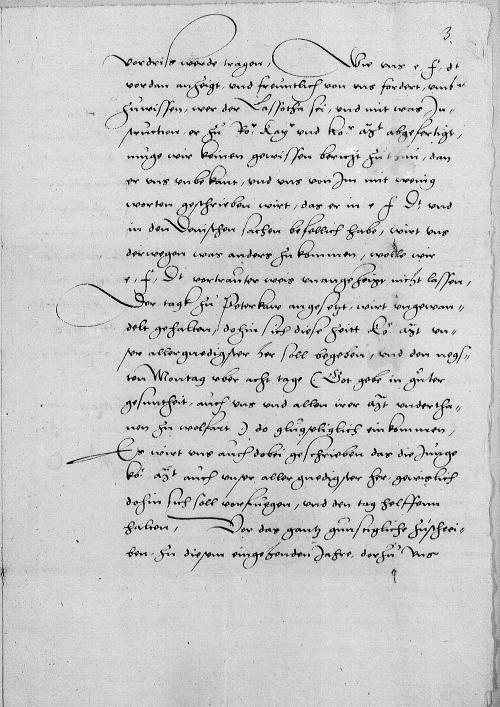 3.
vordriss werde tragen, Wie uns e f dt
vordan anzeigt, und freuntlich von uns fordert, umb
zuwissen, wer der Lassotha sei, und mit was In-
struction er zu Ro Kay und Ko Mt abgefertigt,
muge wir keinen gewissen bericht thun, dan
er uns unbekant, und uns von Im mit wenig
worten geschrieben wirt, das er in e f Dt und
in den Denischen sachen befellich habe, wirt uns
derwegen was anders zukommen, wolle wir
e, f, Dt vortrauter weis unangezeigt nicht lassen,
Der tagk zu Peterkaw angesetzt, wirt ungewan-
delt gehalten, dohin sich diese heitt Ko Mt un-
ser allergnedigster her soll begeben, und den negs-
ten Montag uber acht tage (Got gebe in guter
gesuntheit, auch uns und allen irer Mt undertha-
nen zu wolfart) do gluglich einkommen,
Es wirt uns auch dobei geschrieben das die Junge
ko: Mt auch unser allergnedigster her, gewislich
dohin sich soll vorfuegen, und den tag helffenn
halten, Vor das gantz gunstigliche zuschrei-
ben, zu diesem eingehenden Jahre, dorzu uns